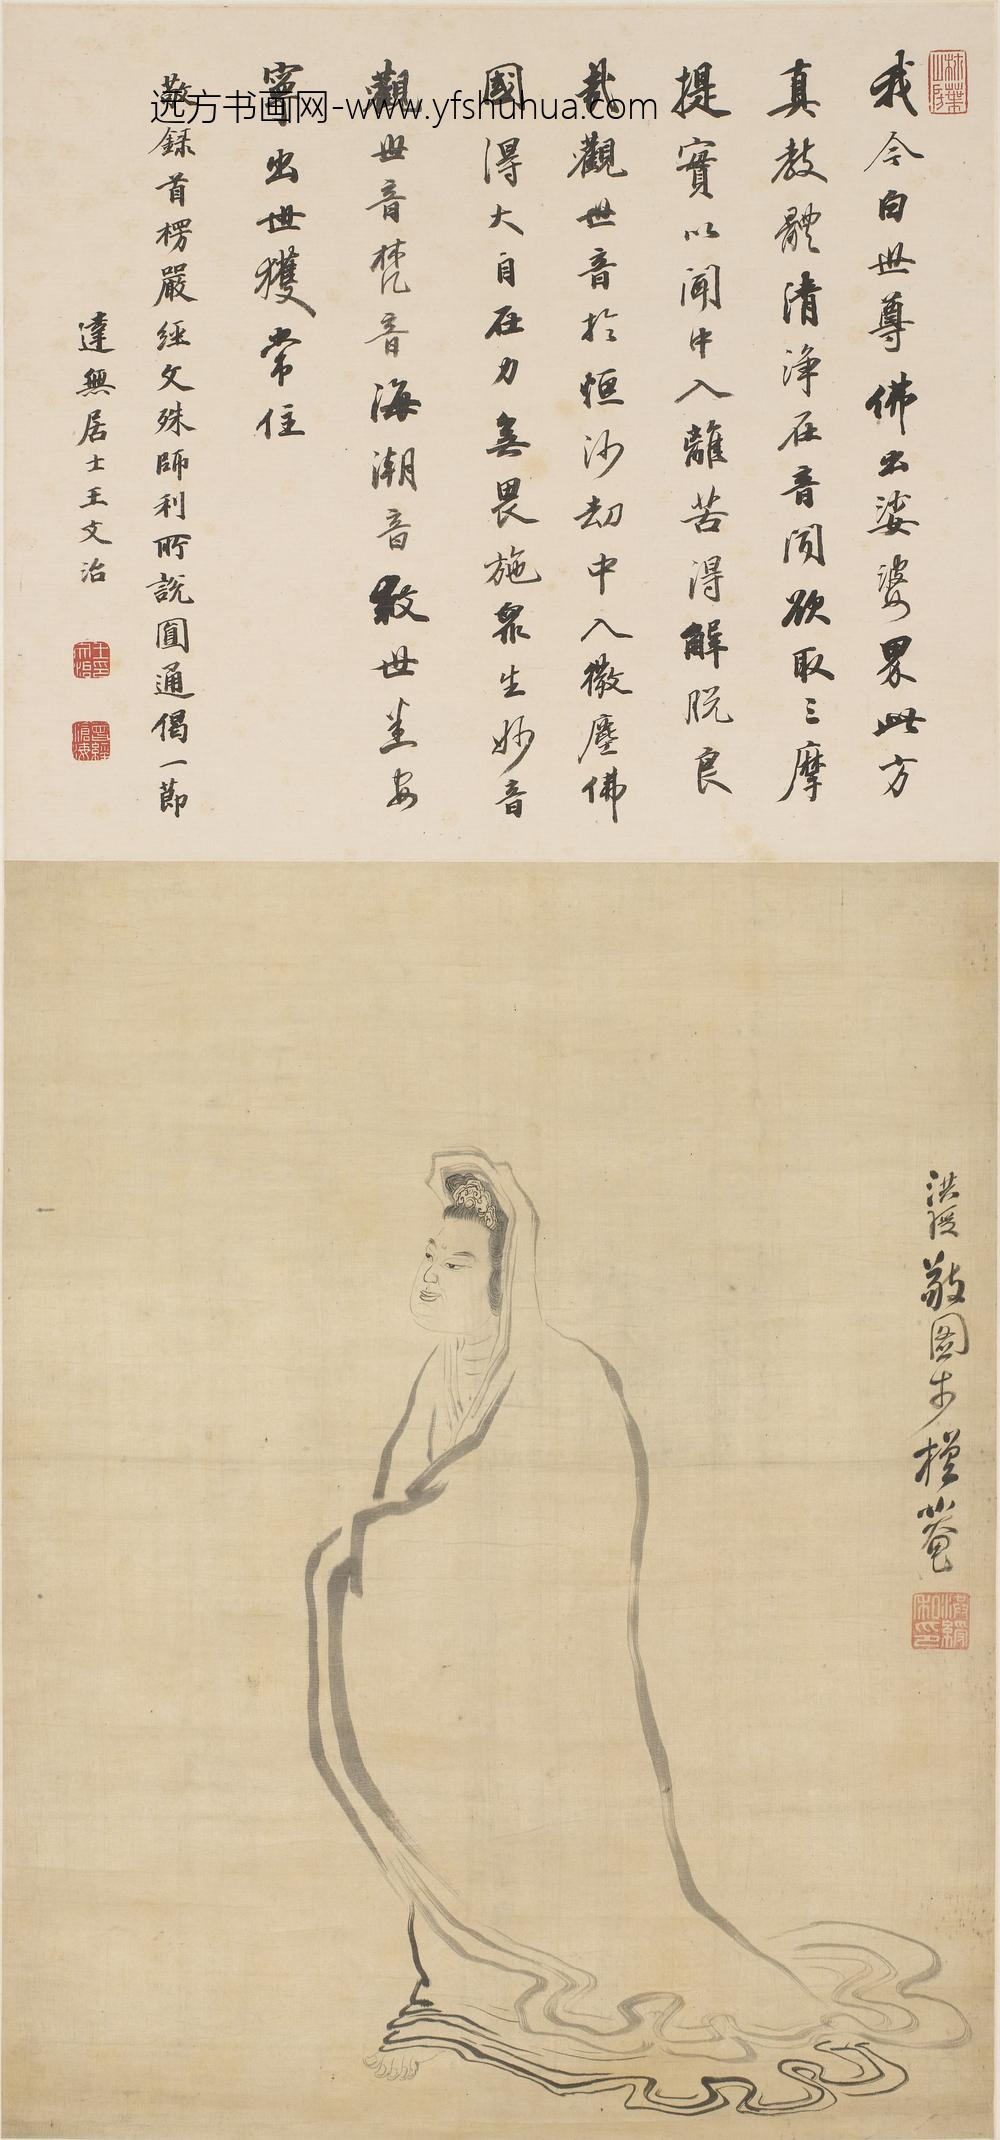 远方书画网-www.yfshuhua.com
我今白世尊佛出娑婆界此方
真教體清淨在音聞欲取三摩
提實以聞中入離苦得解脫良
哉觀世音於恒沙劫中入微塵佛
國得大自在力無畏施眾生妙音
觀世音梵音海潮音救世悉安
寧出世獲常住
敬錄首楞嚴經文殊師利所說圓通偈一節
達無居士王文治
王文治印
曾經滄海
洪綬敬圖步檉菴